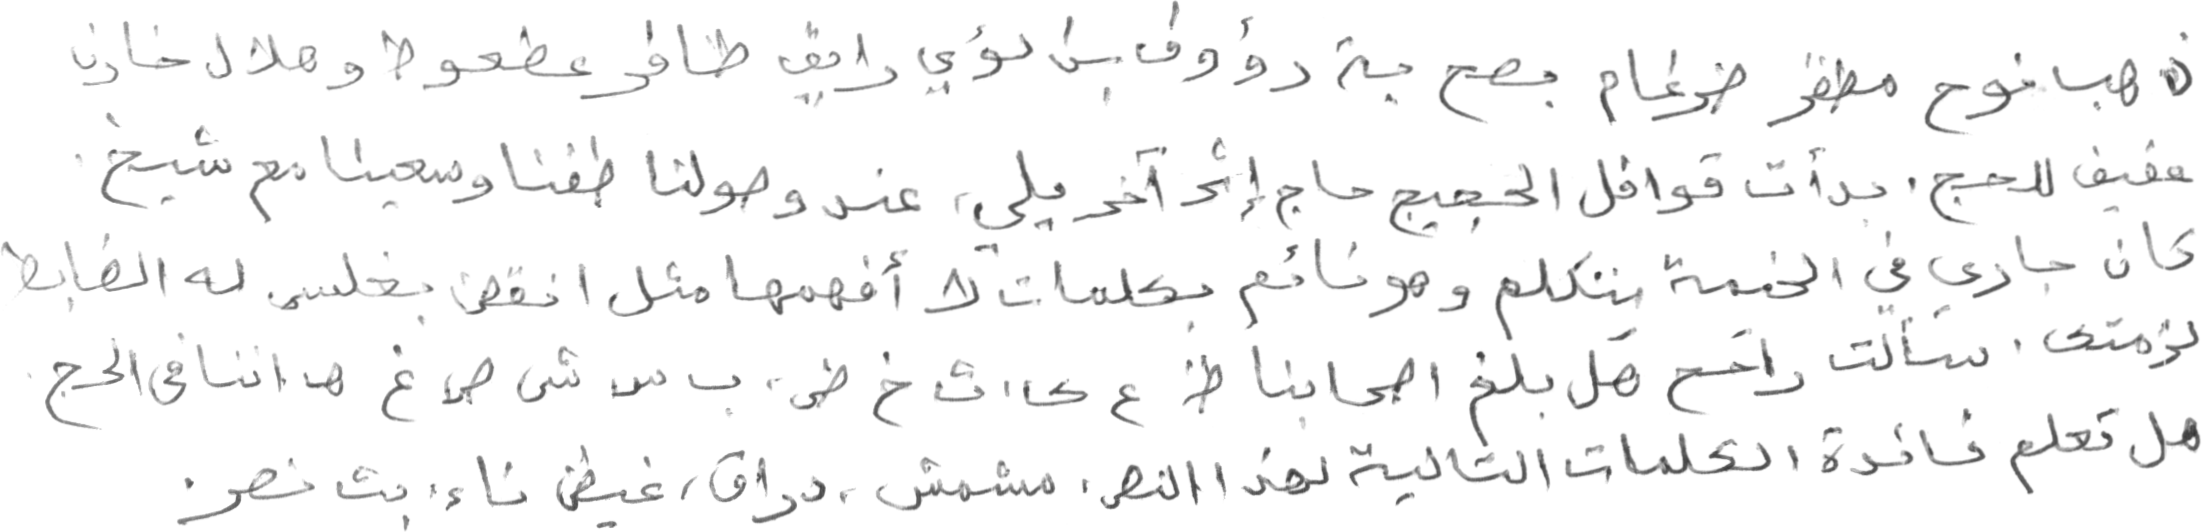 ذهب نوح مظفر ضرغام بصحبة رؤوف بن لؤي رايق ظافر عطعوط وهلال خازن
عفيف للحج. بدأت قوافل الحجيج حاج إثر آخر يلي، عند وصولنا طفنا وسعينا مع شيخ.
كان جاري في الخيمة يتكلم وهو نائم بكلمات لا أفهمها مثل انقض بغلس له الضابط
لزمتى. سألت راجح هل بلغ اصحابنا ظ ع ك، ث خ ض، ب س ش ص غ هـ اننا في الحج.
هل تعلم فائدة الكلمات التالية لهذا النص. مشمش، دراق، غيض ناء، بث نصر.